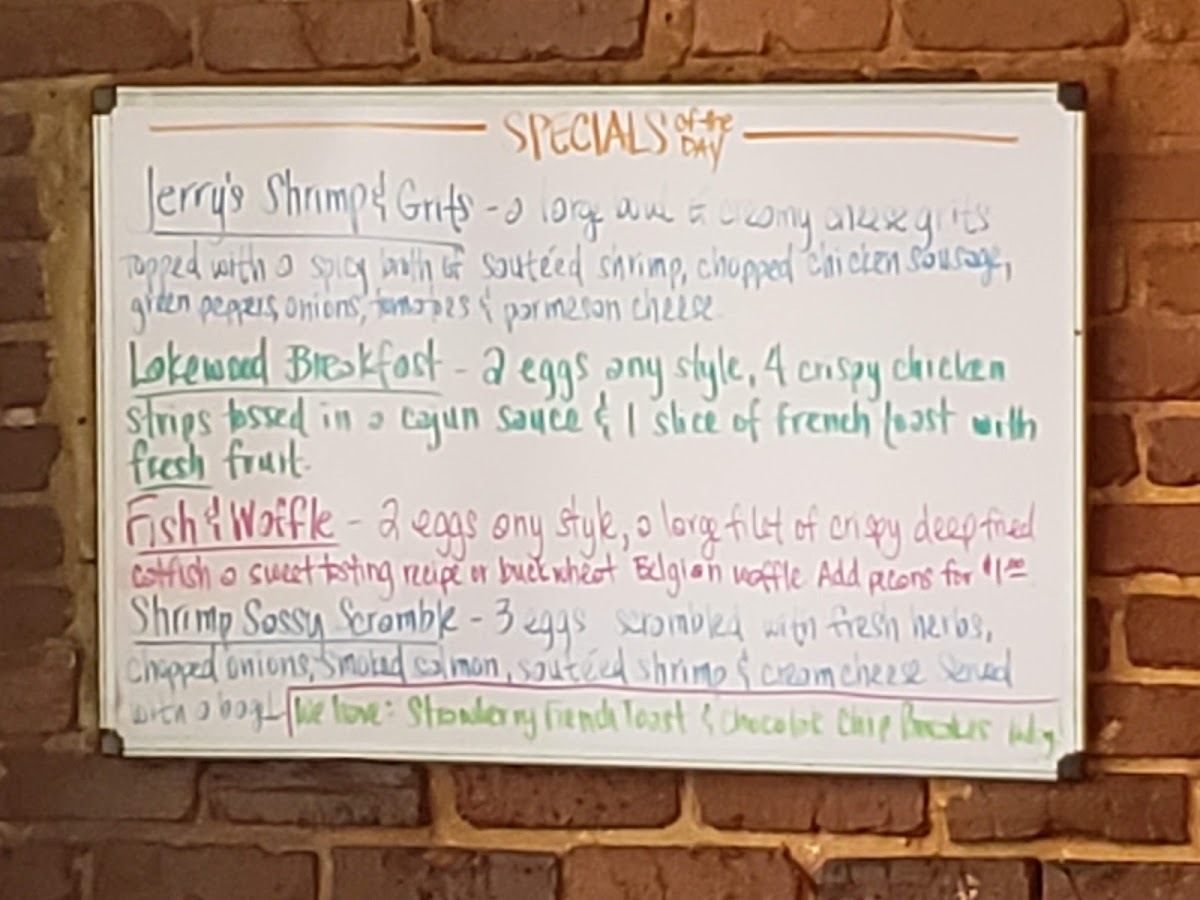 SPECIALS of the DAY
Jerry's Shrimp & Grits - a large bowl of creamy cheese grits
topped with a spicy broth of sautéed shrimp, chopped chicken sausage,
green peppers, onions, tomatoes & parmesan cheese.
Lakewood Breakfast - 2 eggs any style, 4 crispy chicken
strips tossed in a cajun sauce & 1 slice of french toast with
fresh fruit.
Fish & Waffle - 2 eggs any style, a large filet of crispy deep fried
catfish a sweet tasting recipe or buckwheat Belgian waffle Add pecans for $1.00
Shrimp Sassy Scramble - 3 eggs scrambled with fresh herbs,
chopped onions, smoked salmon, sautéed shrimp & cream cheese served
with a bagel
We have: Strawberry French Toast & Chocolate Chip